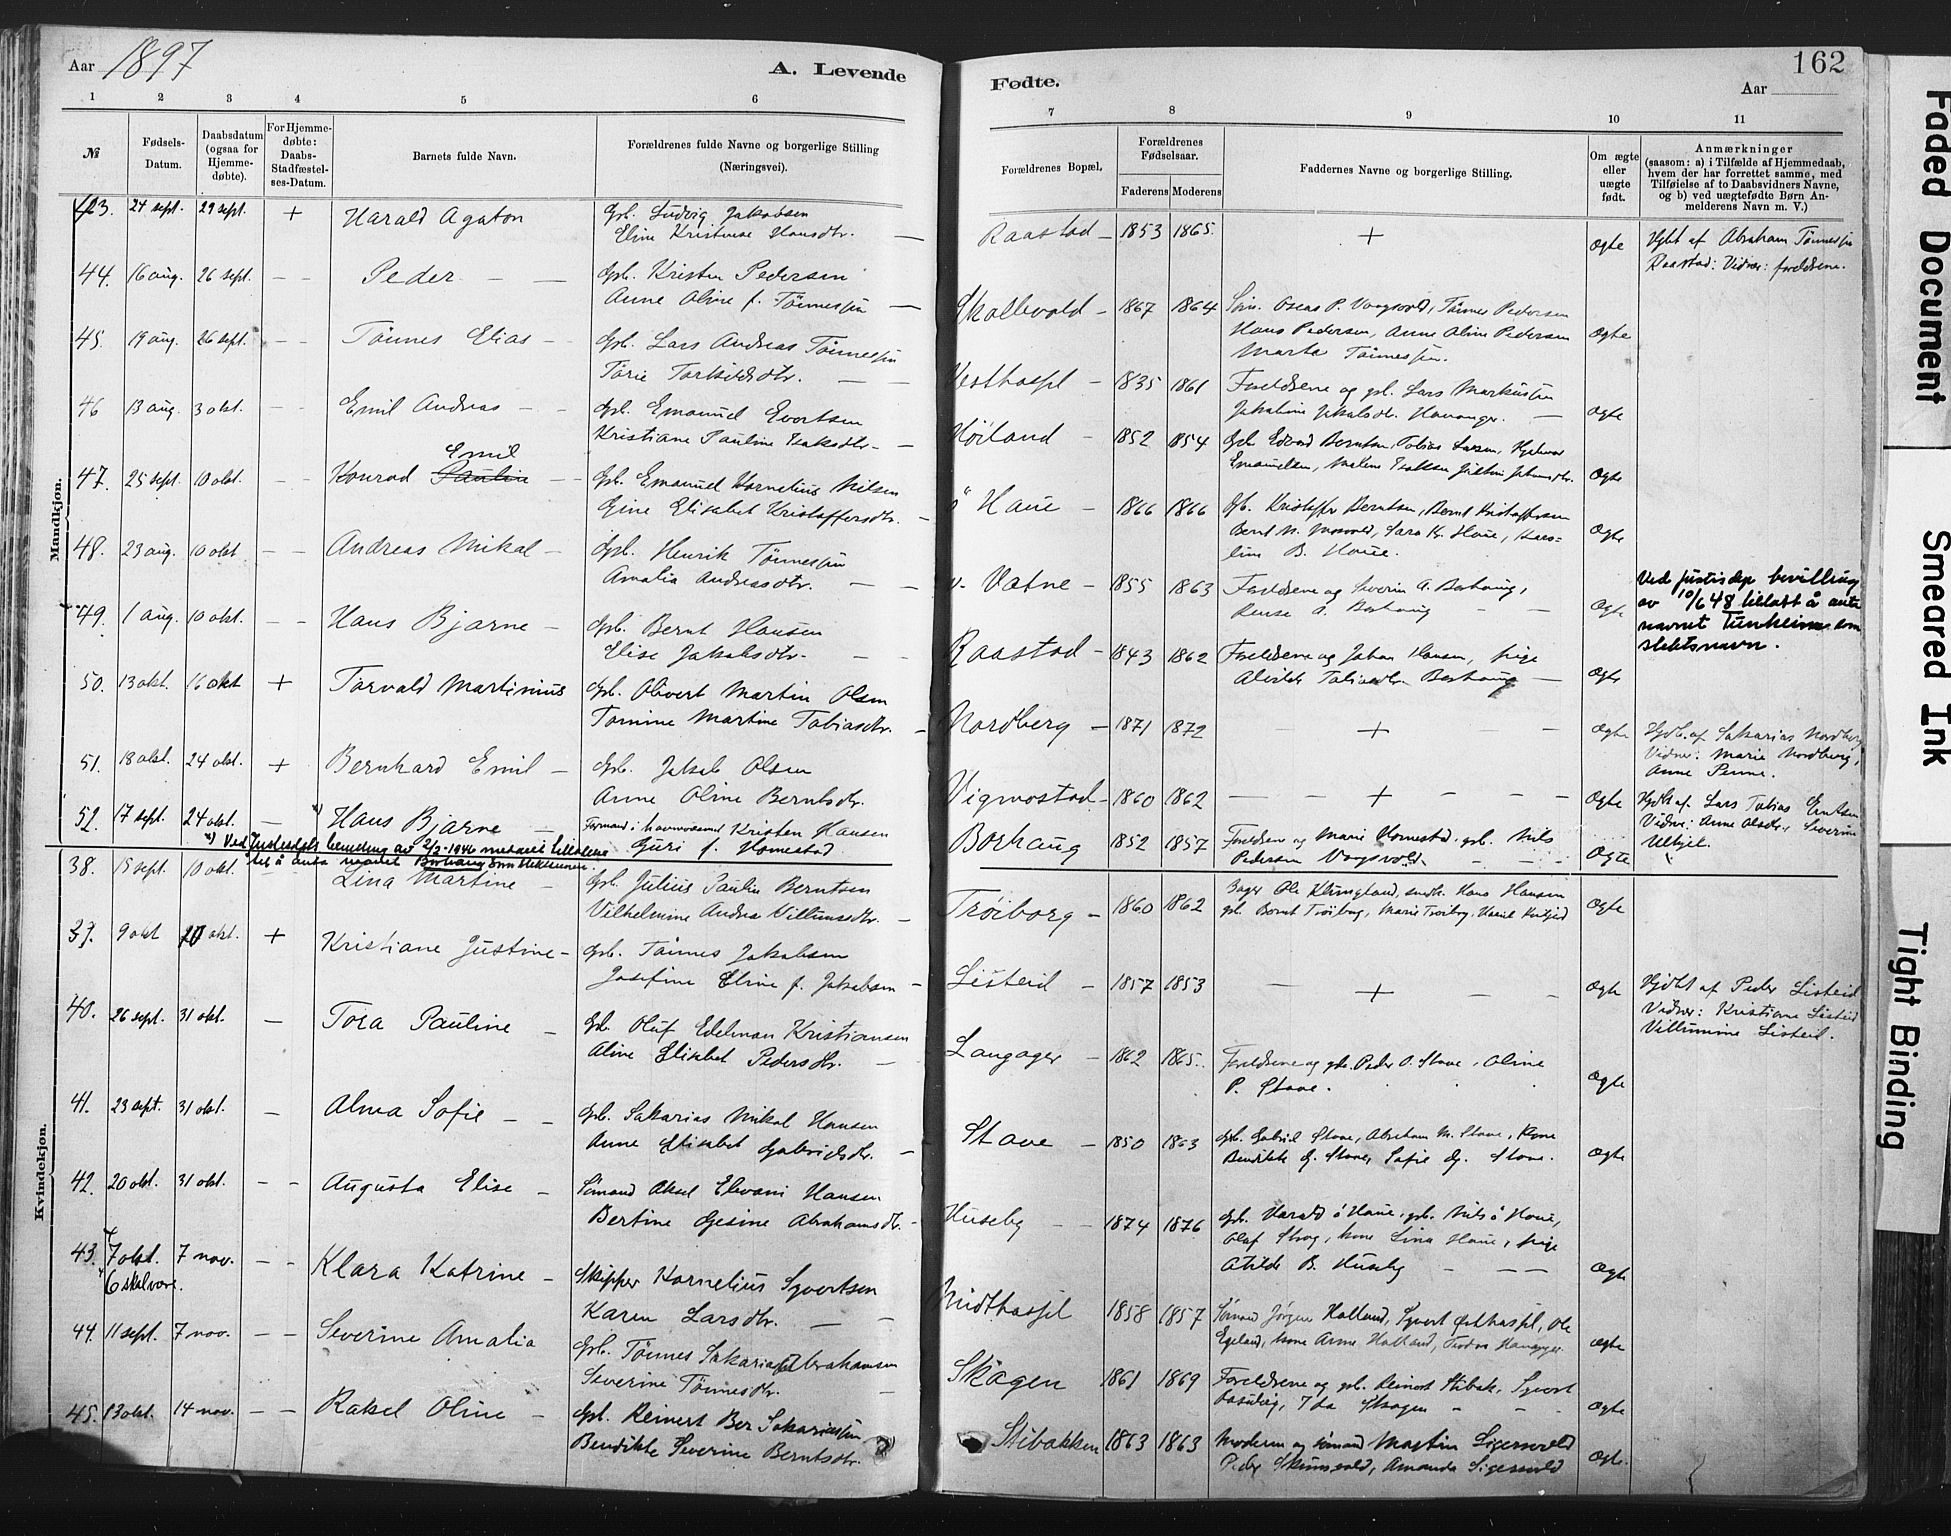 Aar 1897
A. Levende
1 2 3 4 5 6
№
Fødsels-
Datum.
Daabsdatum
(ogsaa for
Hjemme-
døbte).
For Hjemme-
døbte:
Daabs-
Stadfæstel-
ses-Datum.
Barnets fulde Navn.
Forældrenes fulde Navne og borgerlige Stilling
(Næringsvei).
Mandkjøn.
43. 24 sept. 29 sept. + Harald Agaton Gbr. Ludvig Jakobsen
Eline Hansdtr. —
44. 16 aug. 26 sept. — — Peder — — Gbr. Kristen Pedersen
Anne Oline f. Tønnessen —
45. 19 aug. 26 sept. — — Tønnes Elias — Gbr. Lars Andreas Tønnessen
Torkildsdtr. — —
46 13 aug. 3 okt. — — Emil Andreas — — Gbr. Emanuel Evertsen
Kristiane Pauline Isaksdtr. —
Emil
47. 25 sept. 10 okt. — — Konrad Paulin — — Gbr. Emanuel Kornelius Nilsen
Gine Elisabet Kristoffersdtr. —
48. 23 aug. 10 okt — — Andreas Mikal — Gbr. Henrik Tønnessen
Amalia Andreasdtr. — —
49. 1 aug. 10 okt. — — Hans Bjarne — Gbr. Bernt Hansen
Elise Jakobsdtr. — —
50. 13 okt. 16 okt + Torvald Martinius Gbr. Olivert Martin Olsen
Tomine Martine Tobiasdtr. —
51. 18 okt. 24 okt. + Bernhard Emil — Gbr. Jakob Olsen
Anne Oline Berntsdtr.
52. 17 sept. 24 okt. — Hans Bjarne — Formand i havnevesenet Kristen Hansen
Guri f. Homestad
Ved bevilling av 2/3-1946 meddelt tillatelse
til å anta navnet Borhaug som slektsnavn.
Kvindekjøn.
38. 15 sept. 10 okt. — Lina Martine — Gbr. Julius Paulin Berntsen
Vilhelmine Andrea Villumsdtr. —
39. 9 okt okt. + Kristiane Justine — Gbr. Tønnes Jakobsen
Josefine Eline f. Jakobsen —
40. 26 sept. 31 okt. — Tora Pauline — Gbr. Oluf Edelman Kristiansen
Aline Elisabet Pedersdtr. —
41. 23 sept. 31 okt. — Alma Sofie — — Gbr. Sakarias Mikal Hansen
Anne Elisabet Gabrielsdtr. —
42. 20 okt. 31 okt. — — Augusta Elise — Sømand Aksel Elevani Hansen
Bertine Gesine Abrahamsdtr. —
43. 7 okt. 7 nov. — — Klara Katrine — Skipper Kornelius Syvertsen
6 skal være. Karen Larsdtr. — —
44. 11 sept. 7 nov. — — Severine Amalia Gbr. Tønnes Sakarias Abrahamsen
Severine Tønnesdtr. —
45. 13 okt. 14 nov. — — Rakel Oline — Gbr. Reinert Ber Sakariassen
Bendikte Severine Berntsdtr.
Fødte.
162
Aar
7 8 9 10 11
Forældrenes Bopæl.
Forældrenes
Fødselsaar.
Faderens Moderens
Faddernes Navne og borgerlige Stilling.
Om ægte
eller
uægte
født.
Anmærkninger
(saasom: a) i Tilfælde af Hjemmedaab,
hvem der har forrettet samme, med
Tilføielse af to Daabsvidners Navne,
og b) ved uægtefødte Børn An-
melderens Navn m. V.)
Raastad — 1853 1865. + Ægte Hjdbt af Abraham Tønnessen
Raastad: Vidner: foreldrene.
Skollevold — 1867 1864 Osias P. Vaagsvold, Tønnes Pedersen
Hans Pedersen, Anne Oline Pedersen Ægte
Marta Tønnessen.
Vesthassel — 1835 1861 Foreldrene og gbr. Lars Markussen
Jakobine Jakobsdtr. Hananger. — Ægte
Høiland — 1852 1854 Gbr. Edvard Berntsen, Tobias Larsen, Hjelmer
Emanuelsen, Malene Isaksen Ægte
ø Haue — 1866 1866 Gbr. Kristoffer Berntsen, Bernt Kristoffersen
Sara K. Haue, Ægte
B. Haue.
v. Vatne — 1855 1863 Foreldrene og Severin A. Borhaug,
A. Borhaug — — Ægte
Ved Justisdep bevilling
av 10/6 48 tillatt å anta
navnet Tunheim som
slektsnavn.
Raastad — 1843 1862 Foreldrene og Johan Hansen, pige
Alvilde Tobiasdtr. Borhaug — Ægte
Nordberg — 1871 1872 — + — — Ægte Hjdb. af Sakarias Nordberg
Vidner: Marie Nordberg,
Anne Penne.
Vigmostad — 1860 1862 — — + — — — Ægte Hjdbt af Lars Tobias Berntsen
Vidner: Anne Olsdtr, Severine
Ulhjel.
Borhaug 1852 1857 Foreldrene og Marie Homestad, gbr. Nils
Pedersen Vaagsvold. — — — Ægte
Trøiborg — 1860 1862 Bager Ole Klungland, smedk. Hans Hansen
gbr. Bernt Trøiborg, Marie Trøiborg, Ægte
Listeid — 1857 1853 — + — — Ægte Hjdbt af Peder Listeid
Vidner: Kristiane Listeid
Villumine Listeid.
Langager — 1862 1865. Foreldrene og gbr. Peder O. Stave, Oline
P. Stave. Ægte
Stave — 1850 1863 gbr. Gabriel Stave, Abraham M. Stave, kone
Bendikte G. Stave, Sofie G. Stave. Ægte
Huseby — — 1874 1876 gbr. Harald ø Haue, gbr. Nils ø Haue,
Olaf Skog, kone Lina Haue, pige
Alvilde B. Huseby — — — Ægte
Midthassel 1858 1857 Sømand Jørgen Halland, Syvert Østhassel, Ole
Egeland, kone Anne Halland, Teodor Hananger. Ægte
Skogen 1861 1869 Foreldrene og gbr. Reinert Stibak, Syvert
Ida Skogen — — — Ægte
Stibakken 1863 1863 Moderen og sømand Martin Sigersvold
Peder Skeimsvold, Amanda Sigersvold Ægte.
Faded Document
Smeared Ink
Tight Binding